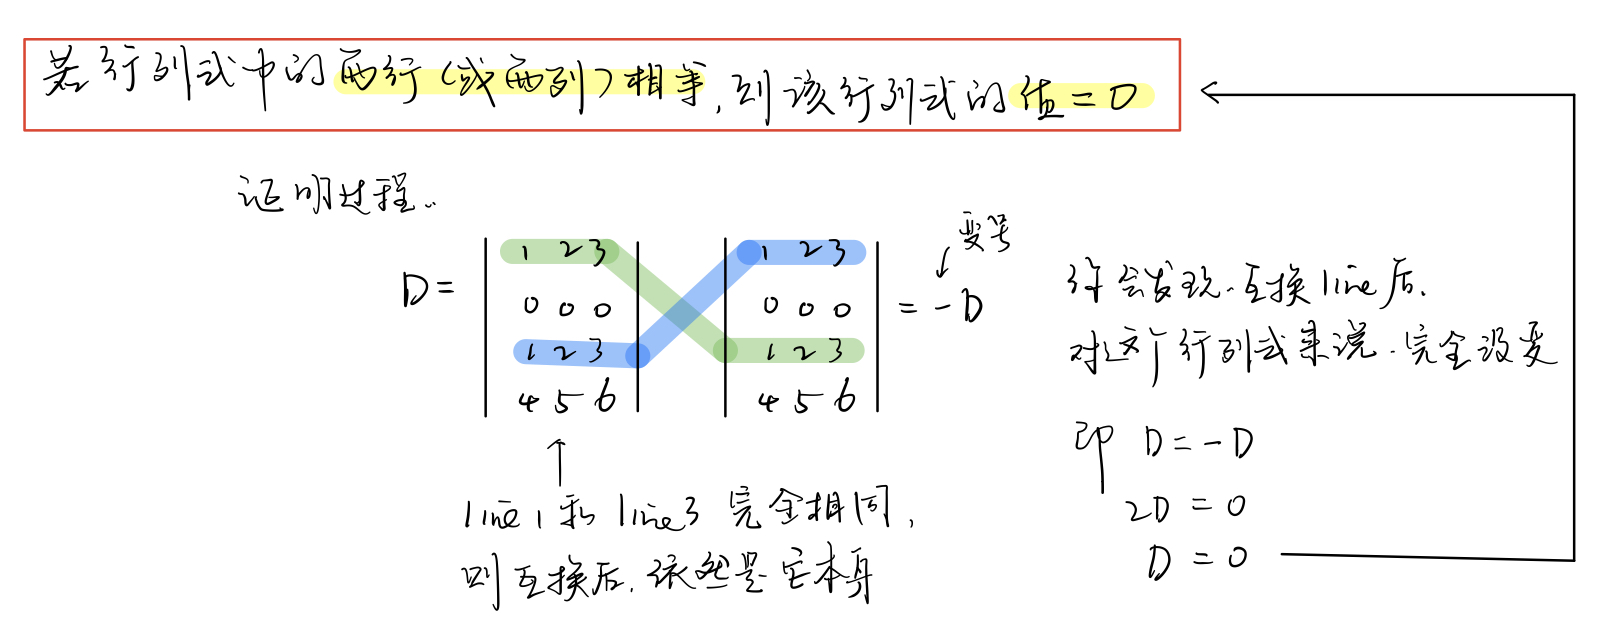 若行列式中的两行(或两列)相等,则该行列式的值=0
证明过程..
D= | 1 2 3 | | 1 2 3 | = -D
| 0 0 0 | | 0 0 0 |
| 1 2 3 | | 1 2 3 |
| 4 5 6 | | 4 5 6 |
变号
line1和line3完全相同,
则互换后,依然是它本身
你会发现.互换line后.
对这个行列式来说.完全没变
即 D=-D
2D=0
D=0